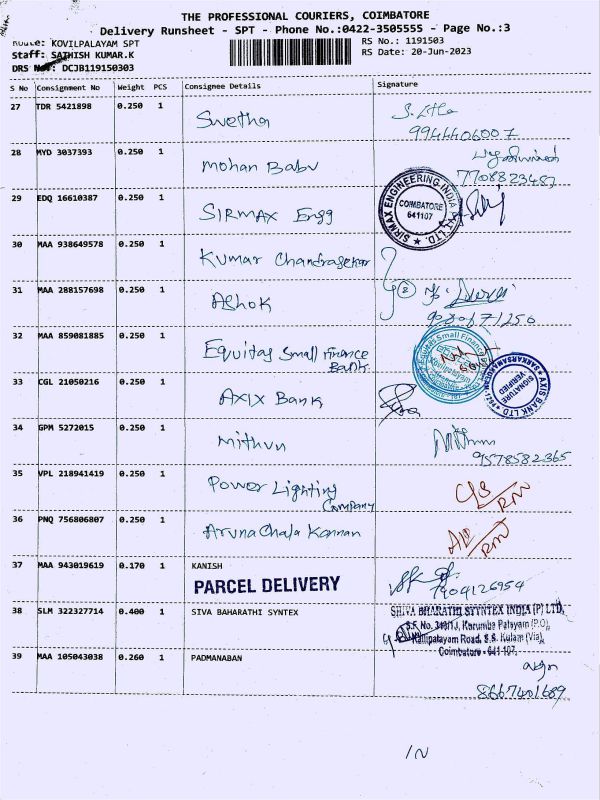 THE PROFESSIONAL COURIERS, COIMBATORE
Delivery Runsheet - SPT - Phone No.:0422-3505555 - Page No.:3
Route: KOVILPALAYAM SPT
RS No.: 1191503
Staff: SATHISH KUMAR.K
RS Date: 20-Jun-2023
DRS No: DCJB119150303
S No Consignment No Weight PCS Consignee Details Signature
27 TDR 5421898 0.250 1 Swetha
9944406007
28 MYD 3037393 0.250 1 Mohan Babu
7708823487
29 EDQ 16610387 0.250 1 SIRMAX Engg
SIRMAX ENGINEERING INDIA PVT. LTD. ★
COIMBATORE
641107
30 MAA 938649578 0.250 1 Kumar Chandrasekar
31 MAA 288157698 0.250 1 Ashok
2
32 MAA 859081885 0.250 1 Equitas Small Finance
Bank
Equitas Small Finance
Kovilpalayam
33 CGL 21050216 0.250 1 AXIX Bank
AXIS BANK LTD
SIGNATURE
VERIFIED
34 GPM 5272015 0.250 1 Mithun
Mithun
9578582365
35 VPL 218941419 0.250 1 Power Lighting
Company
C/S
RM
36 PNQ 756806807 0.250 1 Arunachala Kannan
RM
37 MAA 943019619 0.170 1 KANISH
PARCEL DELIVERY
7904126954
38 SLM 322327714 0.400 1 SIVA BAHARATHI SYNTEX
SHIVA BHARATHI SYNTEX INDIA (P) LTD,
S.F. No. 319/1J, Karumba Palayam (P.O),
Kalipalayam Road, S.S. Kulam (Via),
Coimbatore - 641 107.
39 MAA 105043038 0.260 1 PADMANABAN
8667401689